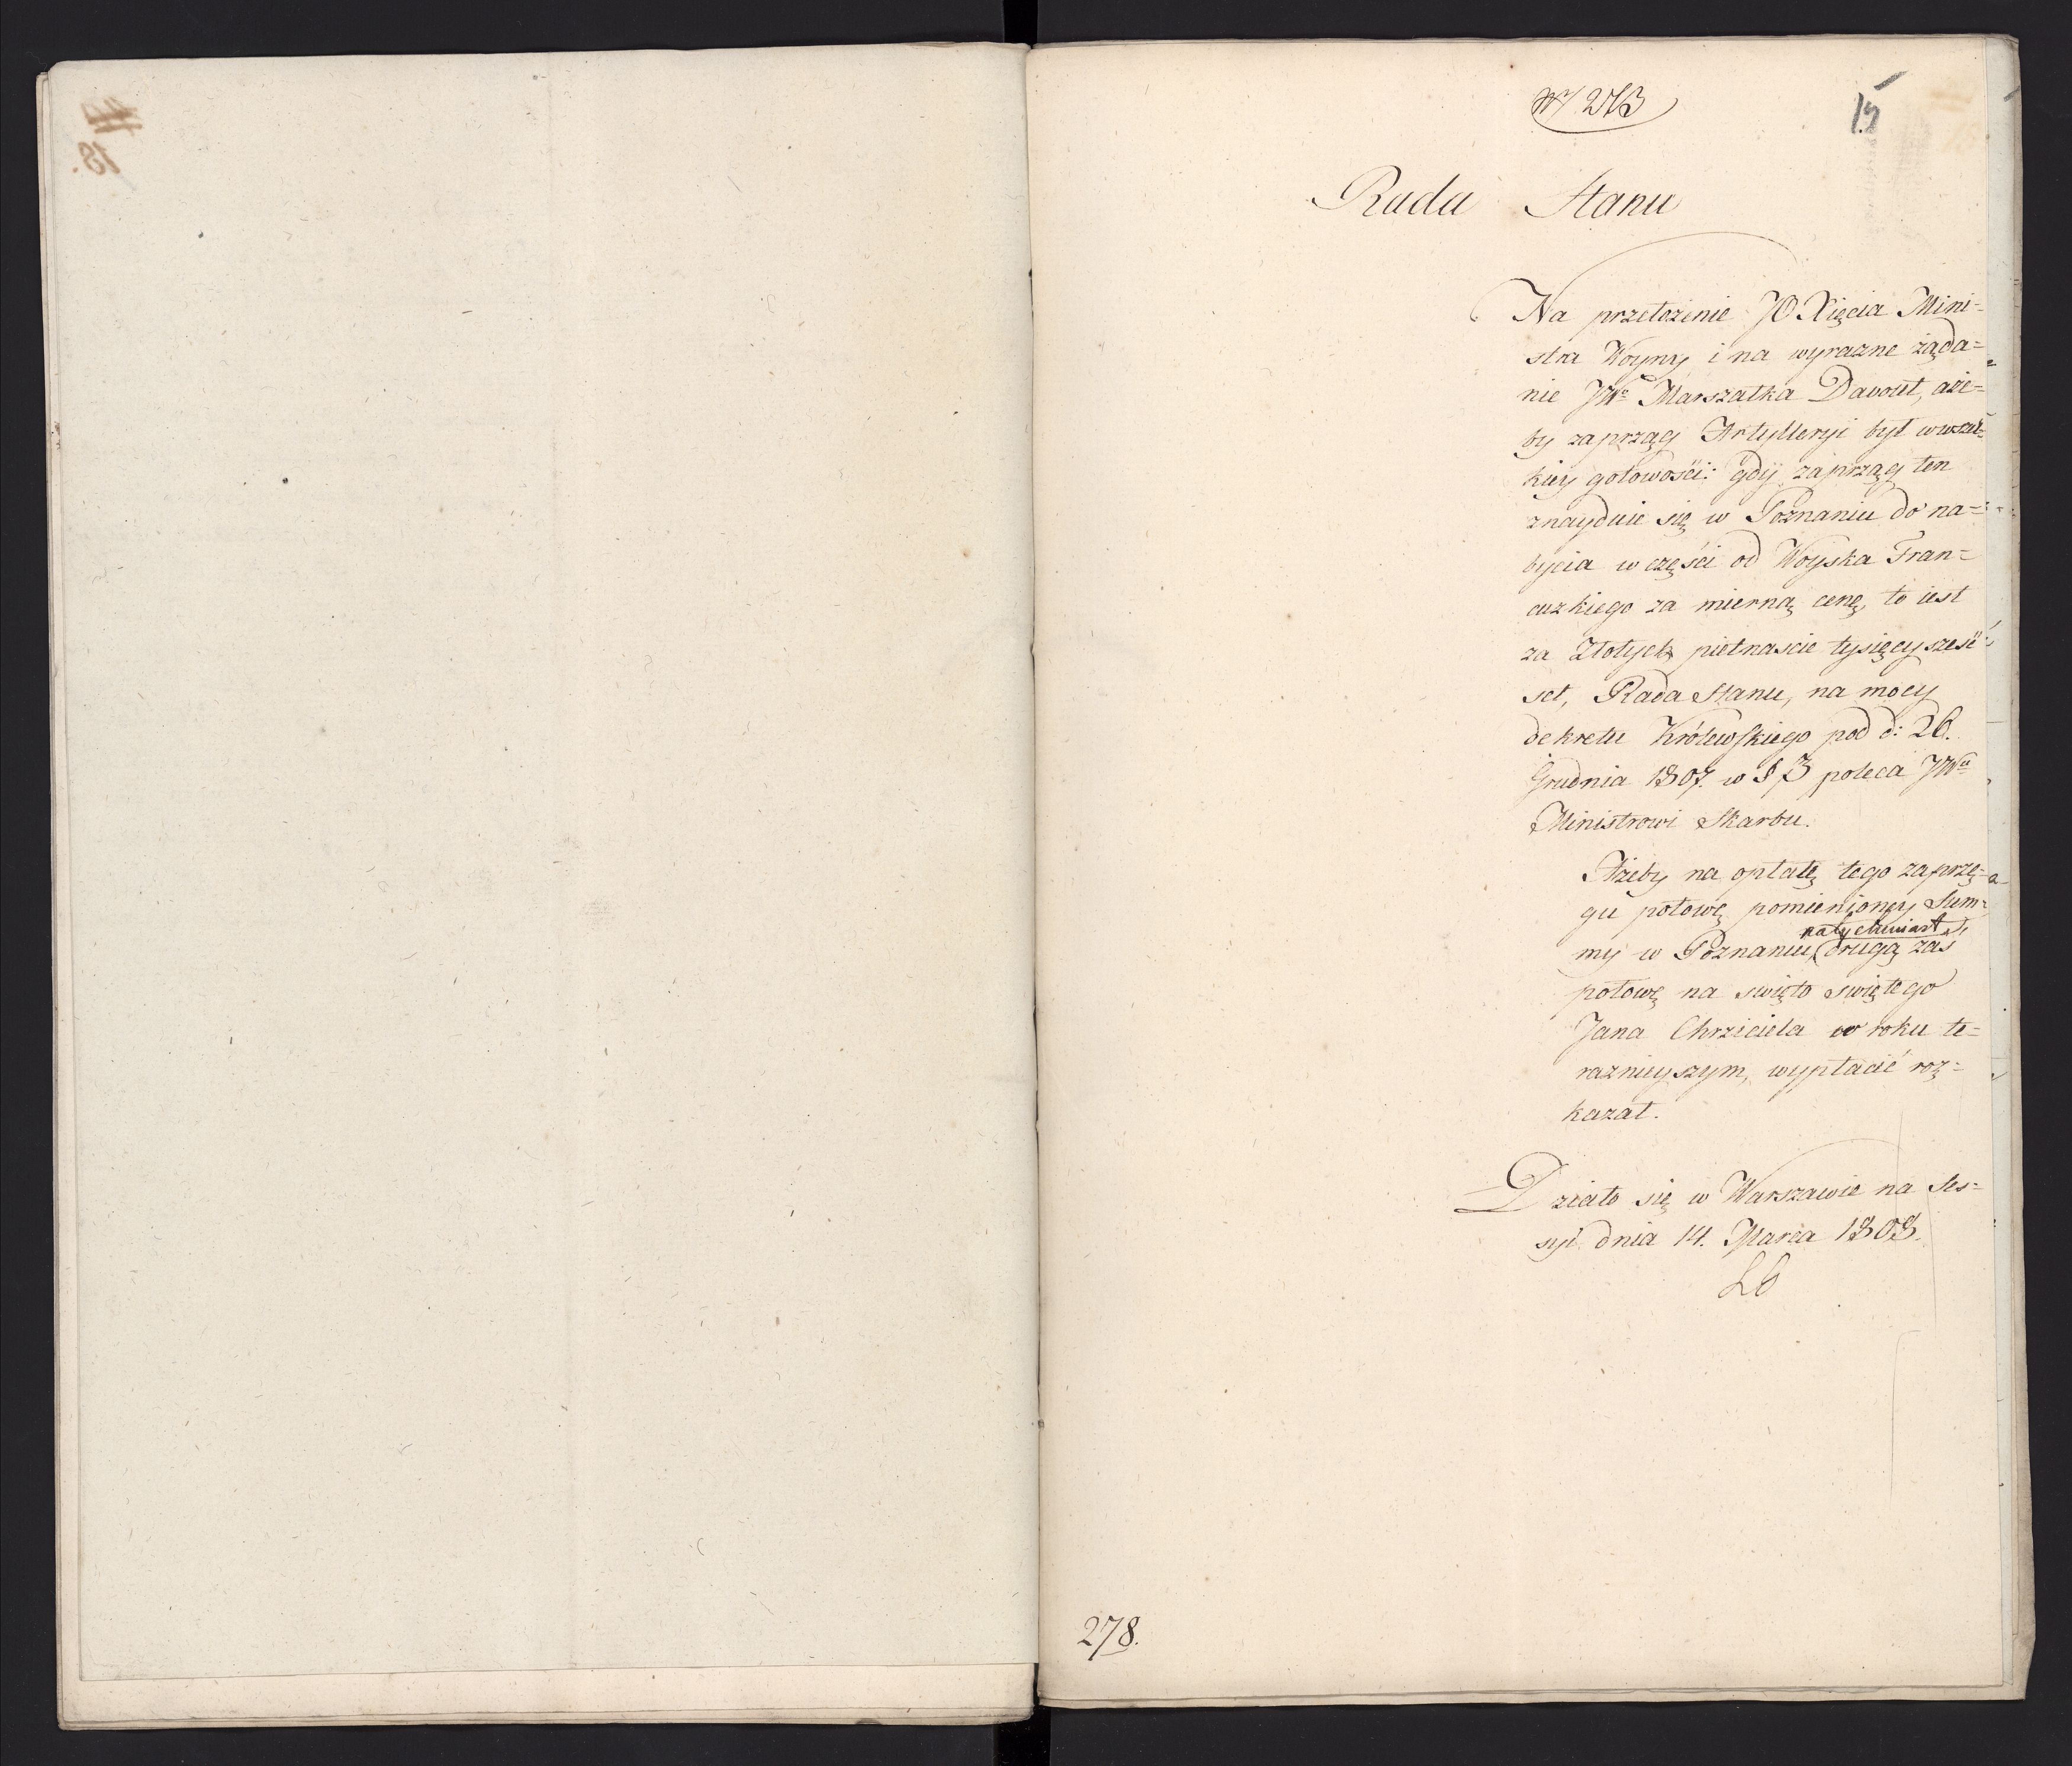 15
Rada Stanu
Na przełożenie JO Xięcia Mini=
stra Woyny i na wyrazne żąda=
nie JWo Marszałka Davout, aże=
by zaprząg Artylleryi był w wszel=
kiey gotowości: gdy zaprząg ten
znayduie się w Poznaniu do na=
bycia w części od Woyska Fran=
cuzkiego za mierną cenę, to iest
za Złotych pietnascie tysięcy sześć
set, Rada Stanu, na mocy
dekretu Królewskiego pod d: 26.
Grudnia 1807. w § 3 poleca JWu
Ministrowi Skarbu.
Ażeby na opłatę tego zaprzę=
gu połowę pomienioney Sum=
natychmiast
my w Poznaniu, drugą zaś
połowę na swięto swiętego
Jana Chrzciciela w roku te=
raznieyszym, wypłacić roz=
kazał.
Działo się w Warszawie na Ses=
syi dnia 14. Marca 1808.
278.